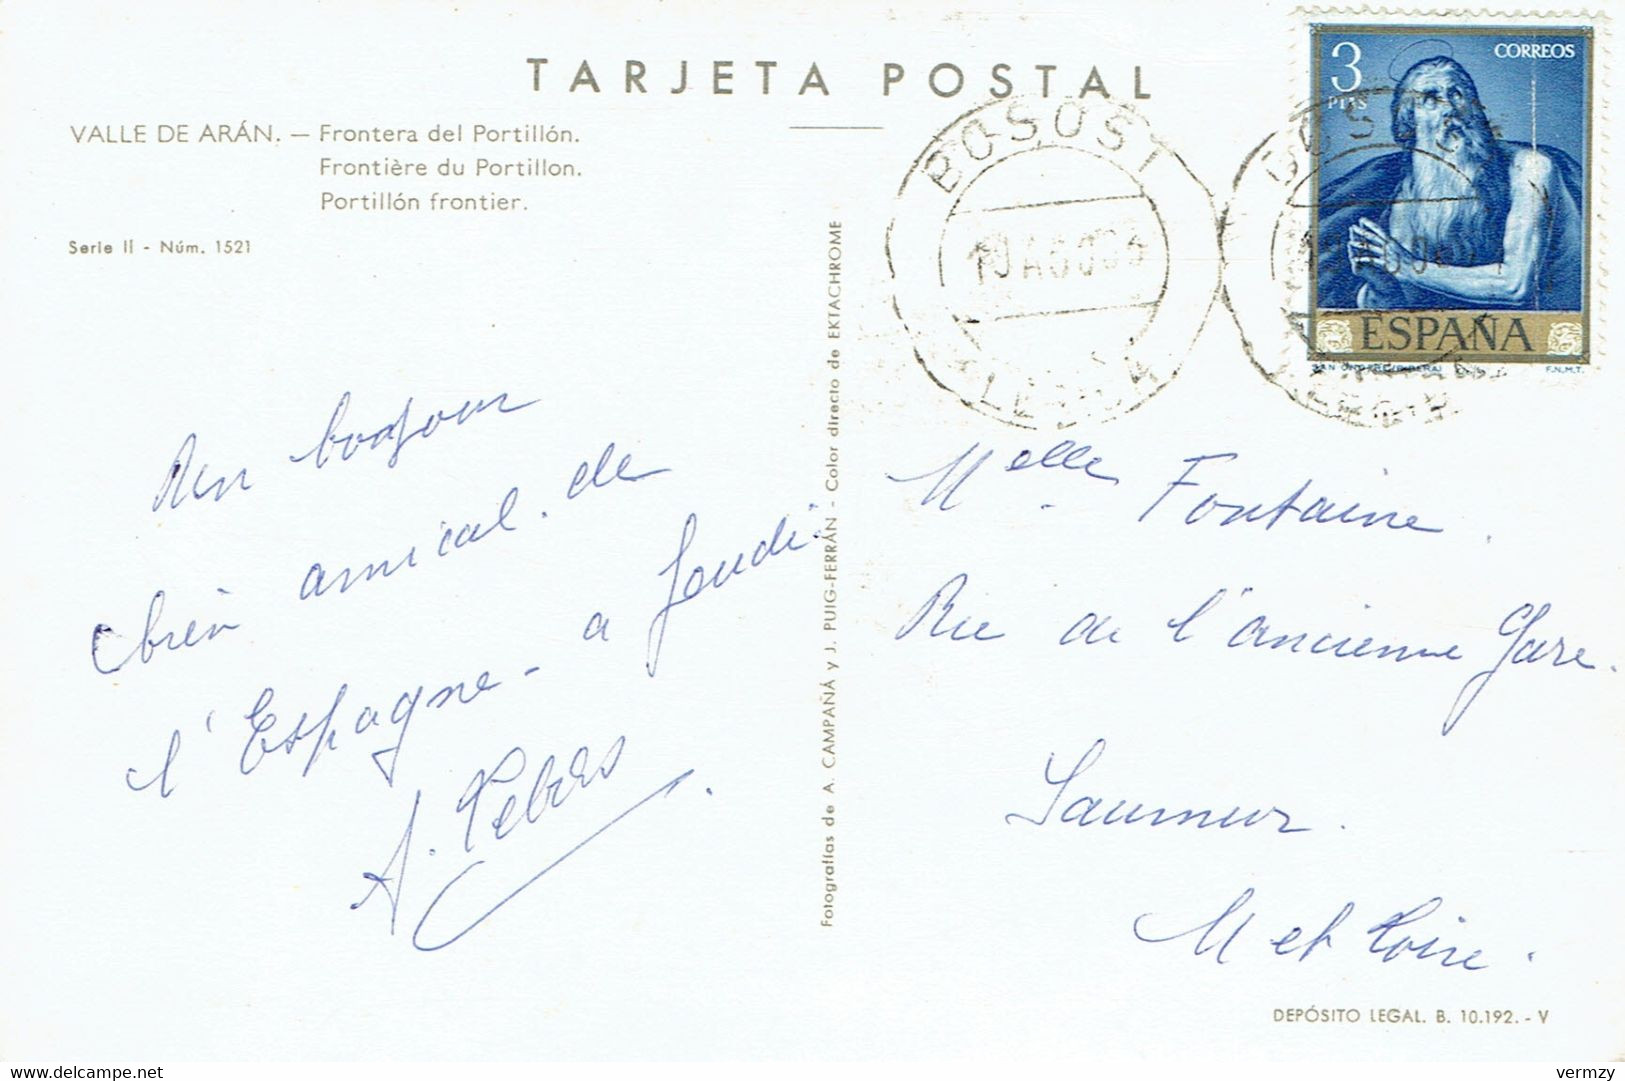 TARJETA POSTAL
VALLE DE ARÁN. — Frontera del Portillón.
Frontière du Portillon.
Portillón frontier.
Serie II - Núm. 1521
3
PTAS
CORREOS
ESPAÑA
F.N.M.T.
BOSOST
LERIDA
BOSOST
Un bonjour
bien amical. de
l'Espagne - a Jeudi.
A.
Fotografías de A. CAMPAÑÁ y J. PUIG-FERRÁN - Color directo de EKTACHROME
Melle Fontaine.
Rue de l'ancienne Gare.
Saumur.
M et Loire.
DEPÓSITO LEGAL. B. 10.192. - V
www.delcampe.net
vermzy